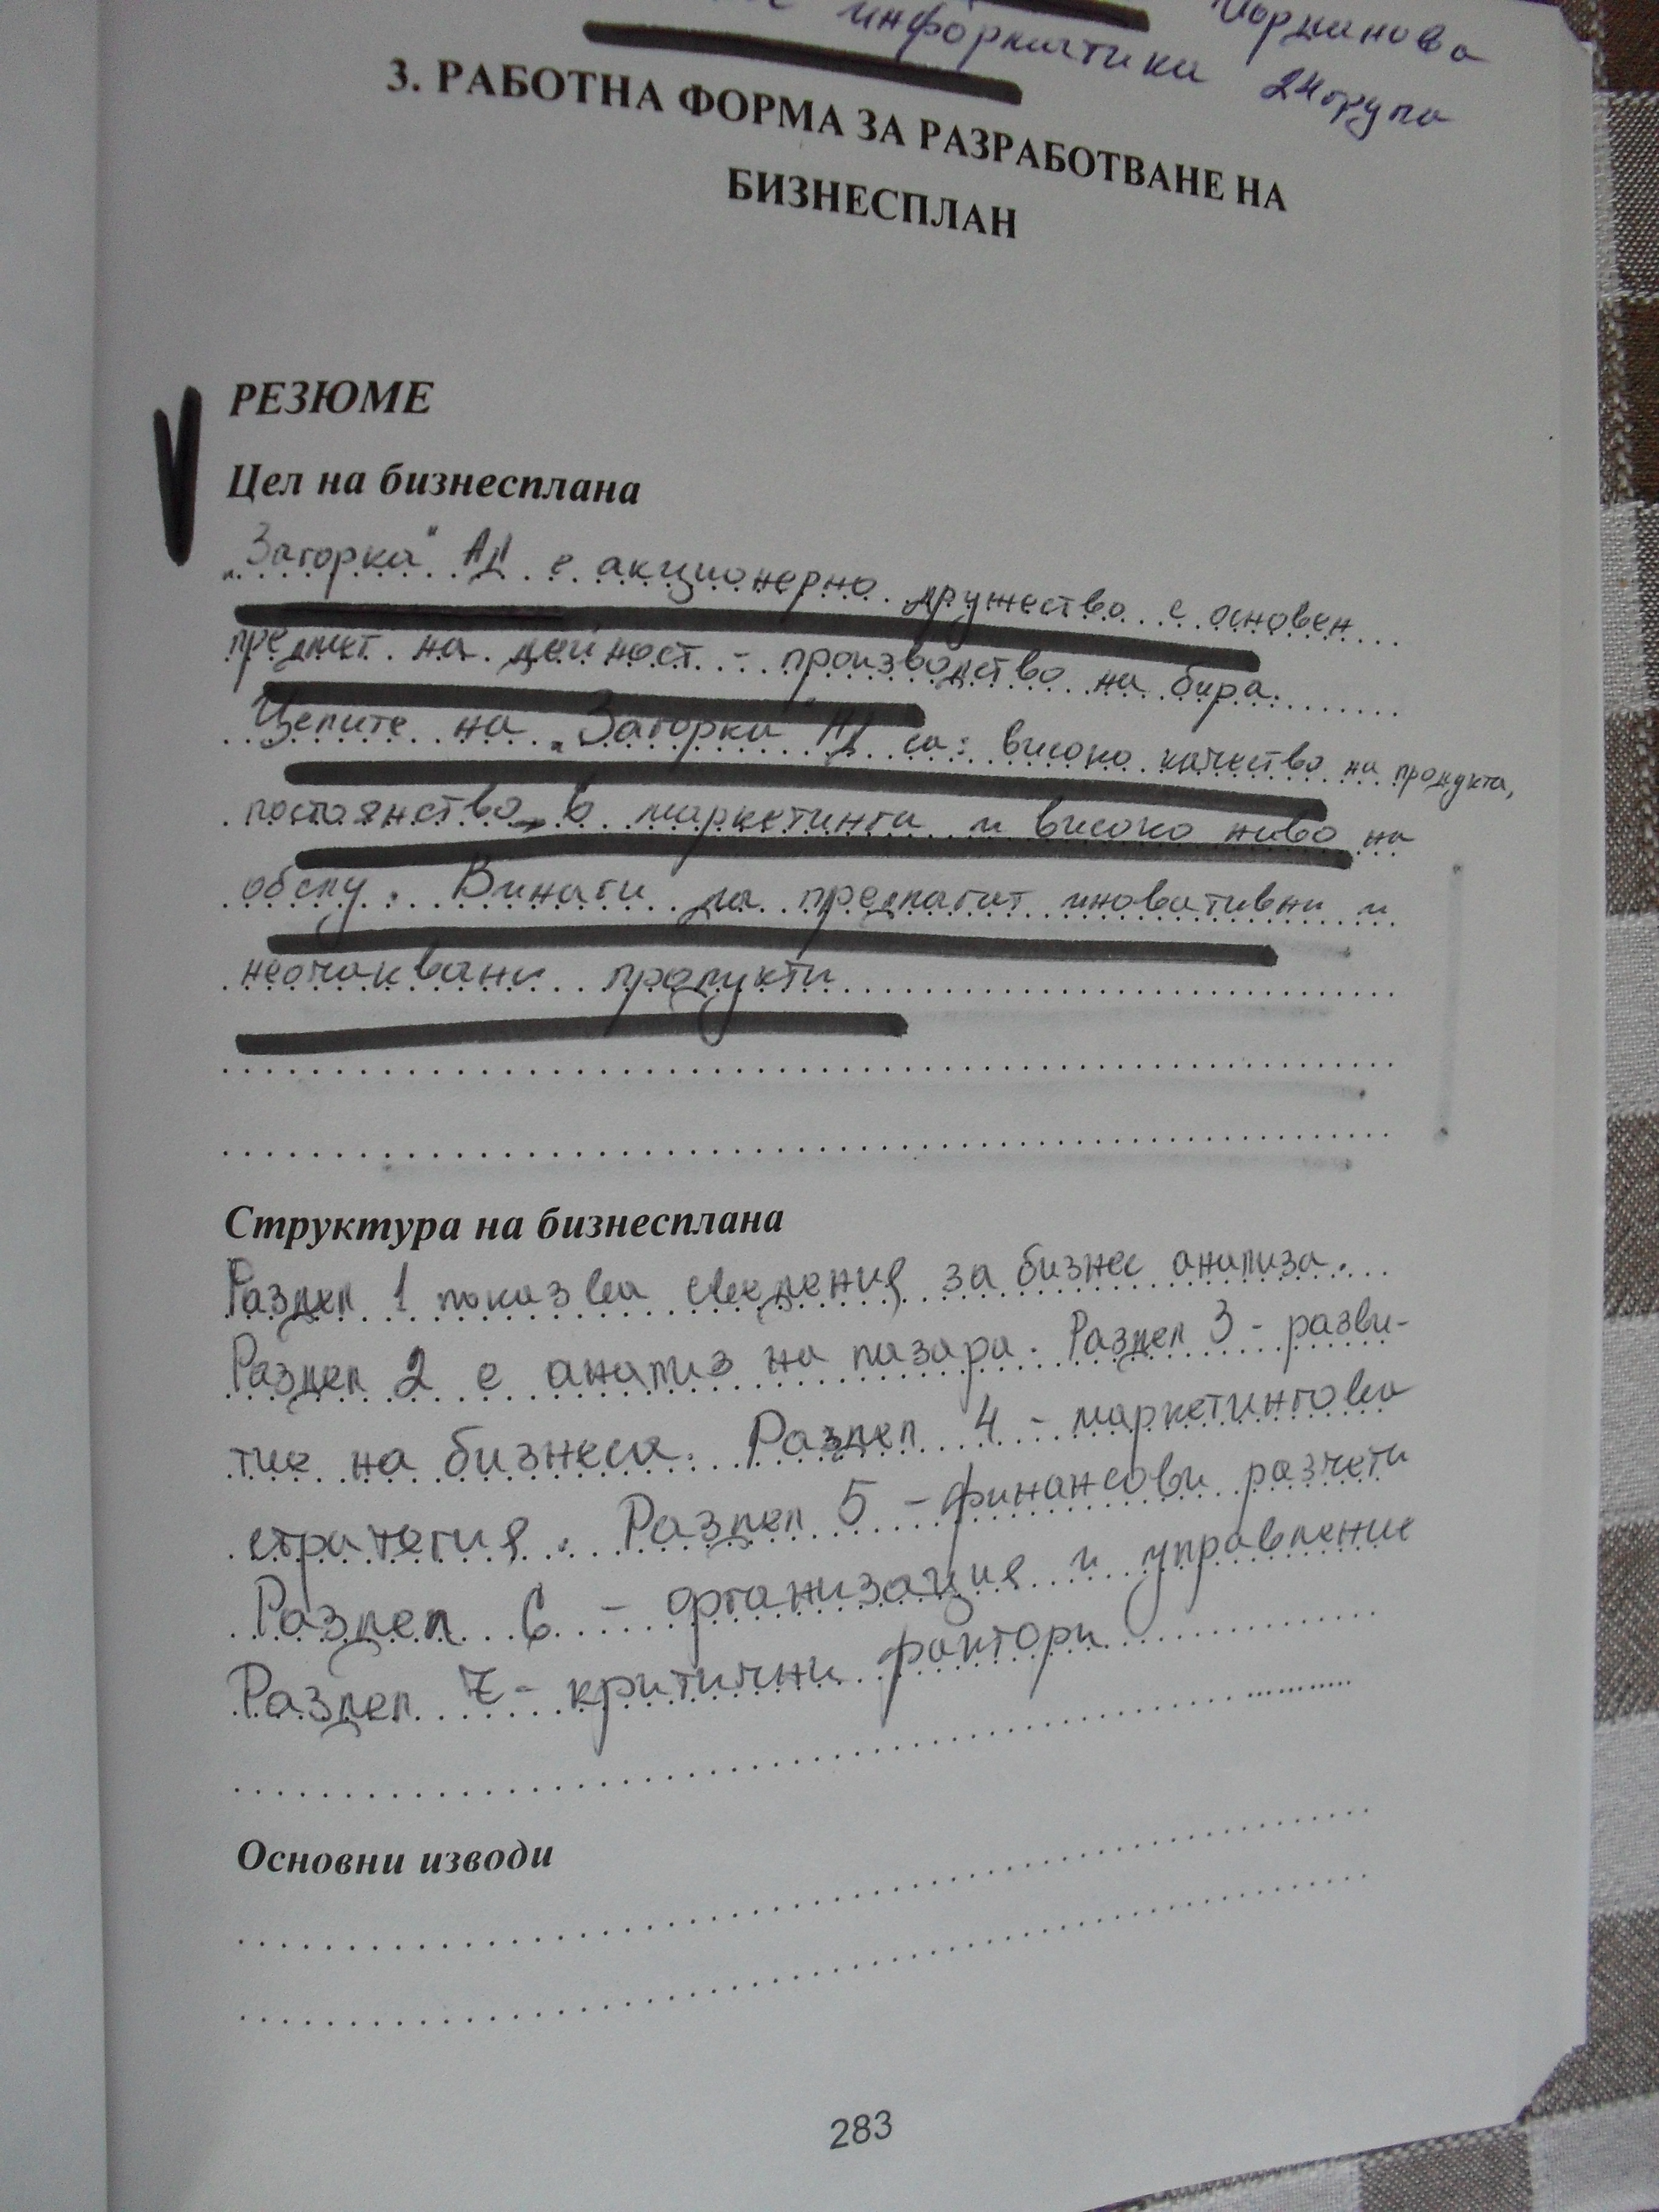 Йорданова
информатика 24 група
3. РАБОТНА ФОРМА ЗА РАЗРАБОТВАНЕ НА
БИЗНЕСПЛАН
РЕЗЮМЕ
Цел на бизнесплана
„Загорка" АД е акционерно дружество с основен
предмет на дейност - производство на бира.
Целите на „Загорка" АД са: високо качество на продукта,
постоянство в маркетинга и високо ниво на
обслу. Винаги да предлагат иновативни и
неочаквани продукти
Структура на бизнесплана
Раздел 1 показва сведения за бизнес анализа.
Раздел 2 е анализ на пазара. Раздел 3 - разви-
тие на бизнеса. Раздел 4 - маркетингова
стратегия. Раздел 5 - финансови разчети
Раздел 6 - организация и управление
Раздел 7 - критични фактори
Основни изводи
283